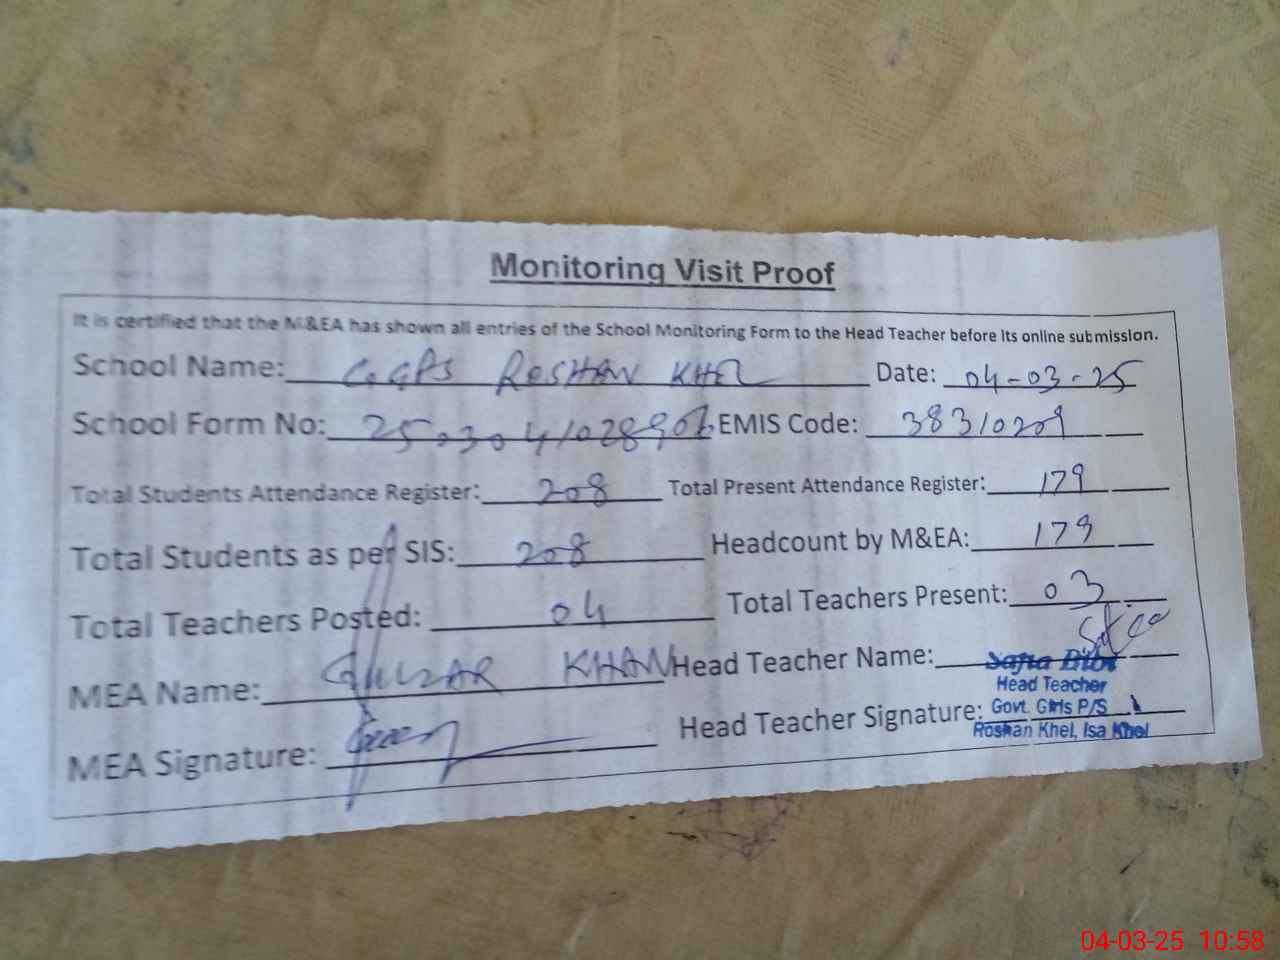 Monitoring Visit Proof
It is certified that the M&EA has shown all entries of the School Monitoring Form to the Head Teacher before its online submission.
School Name: GGPS ROSHAN KHEL Date: 04-03-25
School Form No: EMIS Code: 38310209
Total Students Attendance Register: 208 Total Present Attendance Register: 179
Total Students as per SIS: 208 Headcount by M&EA: 179
Total Teachers Posted: 04 Total Teachers Present: 03
MEA Name: GULZAR KHAN Head Teacher Name: Safia Bibi
Head Teacher
MEA Signature: Head Teacher Signature: Govt. Girls P/S
Roshan Khel, Isa Khel
04-03-25 10:58